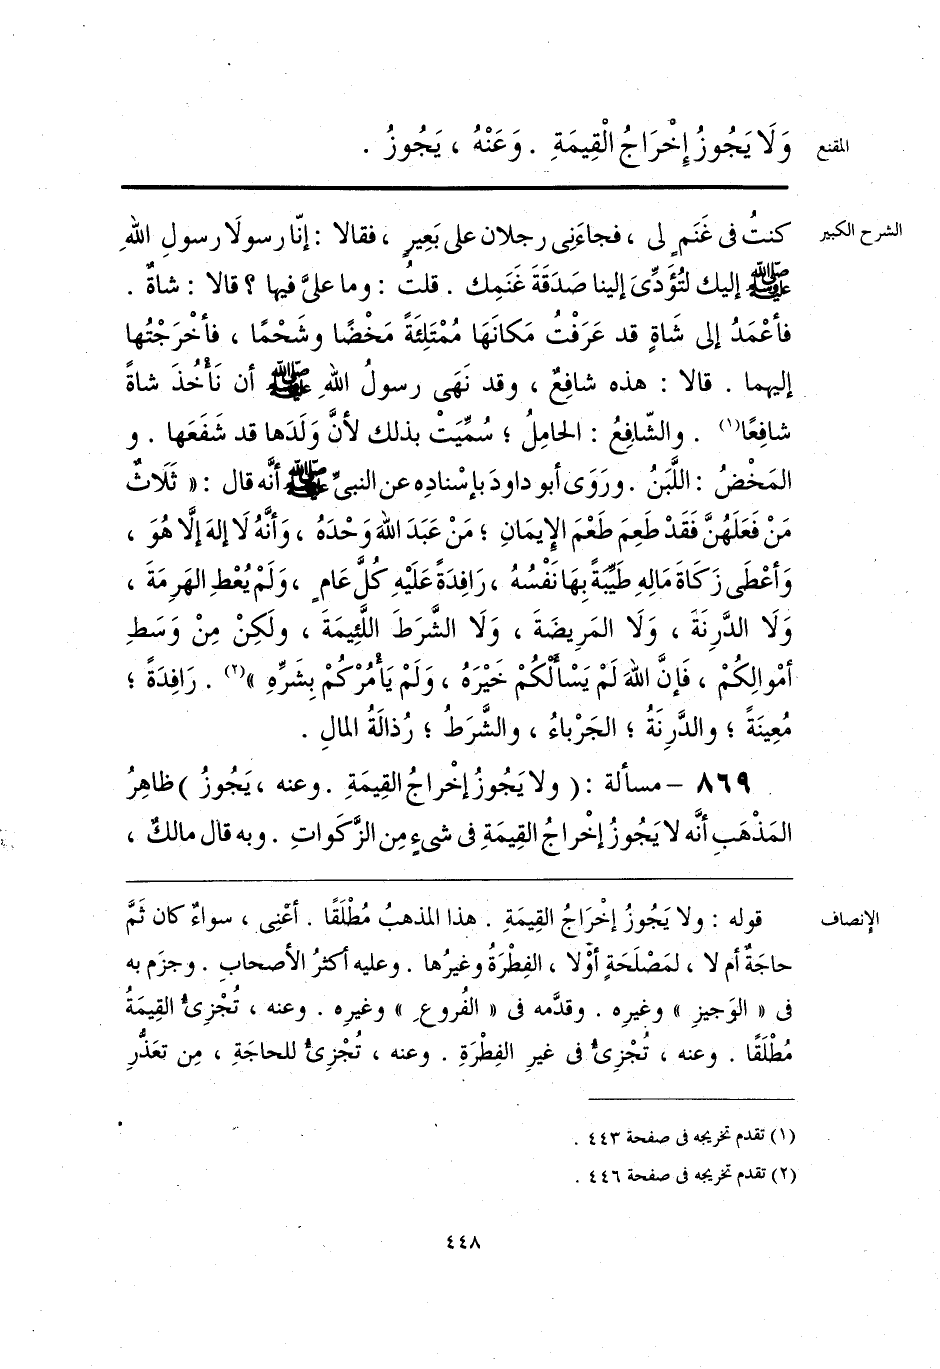 المقنع
وَلَا يَجُوزُ إِخْرَاجُ الْقِيمَةِ . وَعَنْهُ ، يَجُوزُ .
الشرح الكبير
كنتُ فى غَنَمٍ لى ، فجاءَنِى رجلان على بَعِيرٍ ، فقالا : إنّا رسولَا رسولِ اللهِ
ﷺ إليك لتُؤَدِّىَ إلينا صَدَقَةَ غَنَمِك . قلتُ : وما علىَّ فيها ؟ قالا : شاةٌ .
فأعْمَدُ إلى شَاةٍ قد عَرَفْتُ مَكانَهَا مُمْتَلِئَةً مَخْضًا وشَحْمًا ، فأخْرَجْتُها
إليهما . قالا : هذه شافِعٌ ، وقد نَهَى رسولُ اللهِ ﷺ أن نَأْخُذَ شاةً
شافِعًا(١) . والشّافِعُ : الحامِلُ ؛ سُمِّيَتْ بذلك لأنَّ وَلَدَها قد شَفَعَها . و
المَخْضُ : اللَّبَنُ . ورَوَى أبو داودَ بإسْنادِه عن النبىِّ ﷺ أنَّه قال : « ثَلَاثٌ
مَنْ فَعَلَهُنَّ فَقَدْ طَعِمَ طَعْمَ الإِيمَانِ ؛ مَنْ عَبَدَ اللهَ وَحْدَهُ ، وَأنَّهُ لَا إلهَ إلَّا هُوَ ،
وَأعْطَى زَكَاةَ مَالِهِ طَيِّبَةً بِهَا نَفْسُهُ ، رَافِدَةً عَلَيْهِ كُلَّ عَامٍ ، وَلَمْ يُعْطِ الهَرِمَةَ ،
وَلَا الدَّرِنَةَ ، وَلَا المَرِيضَةَ ، وَلَا الشَّرَطَ اللَّئِيمَةَ ، ولَكِنْ مِنْ وَسَطِ
أمْوالِكُمْ ، فَإنَّ اللهَ لَمْ يَسْألْكُمْ خَيْرَهُ ، وَلَمْ يَأْمُرْكُمْ بِشَرِّهِ »(٢) . رَافِدَةً ؛
مُعِينَةً ؛ والدَّرِنَةُ ؛ الجَرْباءُ ، والشَّرَطُ ؛ رُذالَةُ المالِ .
٨٦٩ - مسألة : ( ولا يَجُوزُ إخْراجُ القِيمَةِ . وعنه ، يَجُوزُ ) ظاهِرُ
المَذْهَبِ أنَّه لا يَجُوزُ إخْراجُ القِيمَةِ فى شىءٍ مِن الزَّكَواتِ . وبه قال مالكٌ ،
الإنصاف
قوله : ولا يَجُوزُ إخْرَاجُ القِيمَةِ . هذا المذهبُ مُطْلَقًا . أعْنِى ، سواءٌ كان ثَمَّ
حاجَةٌ أم لا ، لمَصْلَحَةٍ أوْلا ، الفِطْرَةُ وغيرُها . وعليه أكثرُ الأصحابِ . وجزَم به
فى « الوَجيزِ » وغيرِه . وقدَّمه فى « الفُروعِ » وغيرِه . وعنه ، تُجْزِئُ القِيمَةُ
مُطْلَقًا . وعنه ، تُجْزِئُ فى غيرِ الفِطْرَةِ . وعنه ، تُجْزِئُ للحاجَةِ ، مِن تعَذُّرِ
(١) تقدم تخريجه فى صفحة ٤٤٣ .
(٢) تقدم تخريجه فى صفحة ٤٤٦ .
٤٤٨